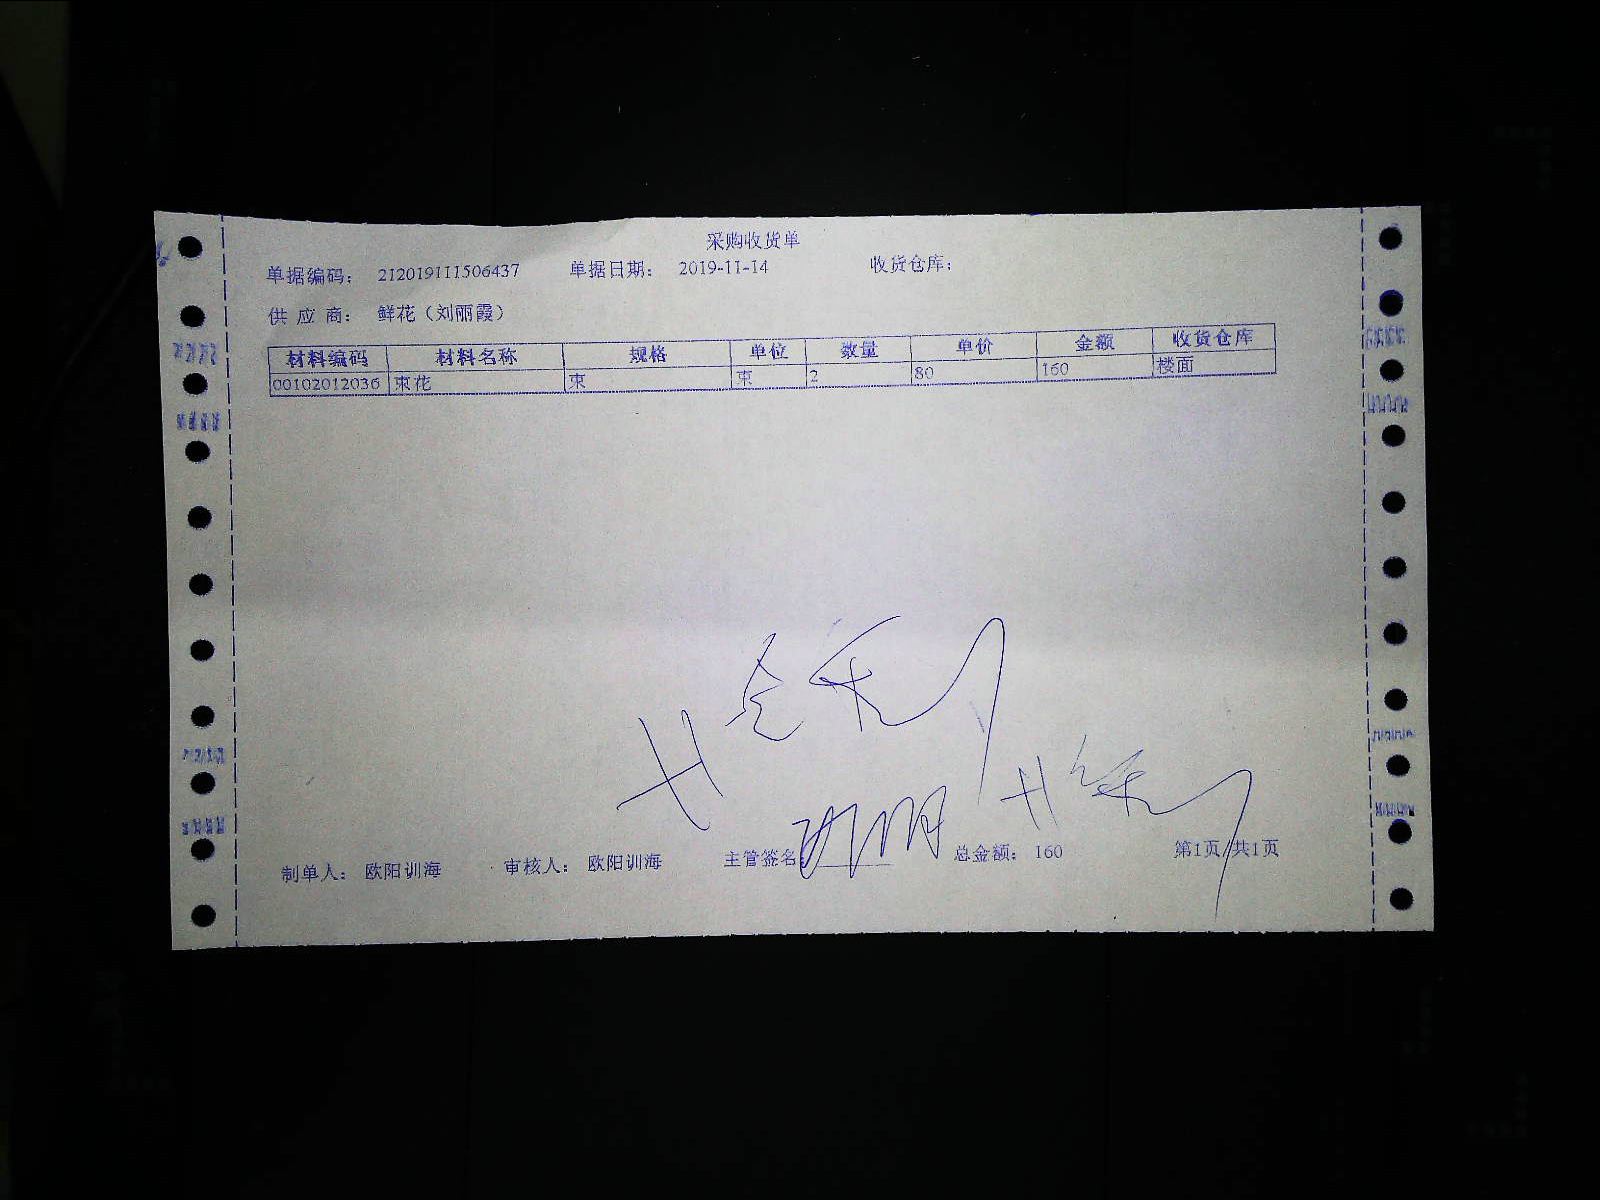 采购收货单
单据编码： 212019111506437 单据日期： 2019-11-14 收货仓库：
供 应 商： 鲜花（刘丽霞）
材料编码 材料名称 规格 单位 数量 单价 金额 收货仓库
00102012036 束花 束 束 2 80 160 楼面
制单人： 欧阳训海 审核人： 欧阳训海 主管签名： 总金额： 160 第1页/共1页